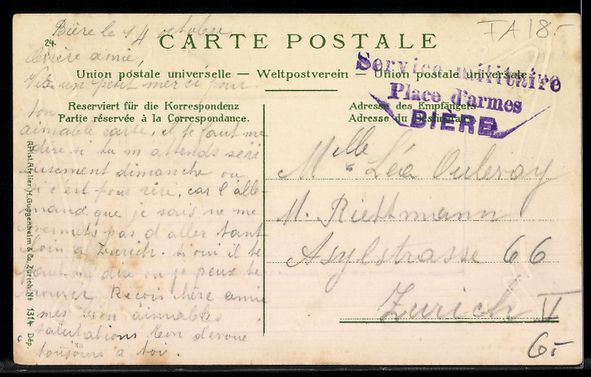 Bière le 14 octobre
I A 18.-
24.
CARTE POSTALE
Chère amie,
Service militaire
Place d'armes
BIÈRE
Union postale universelle — Weltpostverein — Union postale universelle
Vite un petit merci pour
Reserviert für die Korrespondenz
Partie réservée à la Correspondance.
Adresse des Empfängers
Adresse du Destinataire
ton
aimable carte, il te faut me
dire si tu m'attends séri
eusement dimanche ou
si c'est pour rire, car l'alle
mand que je sais ne me
permets pas d'aller tant
loin à Zurich. Si oui il te
faut me dire où je peux te
trouver. Reçois chère amie
mes bien aimables
salutations. Ton dévoué
toujours à toi.
Mlle Léa
M. Riettmann
Asylstrasse 66
Zurich V
6.-
H. Guggenheim & Co., Zürich. No. 1314 Dép.